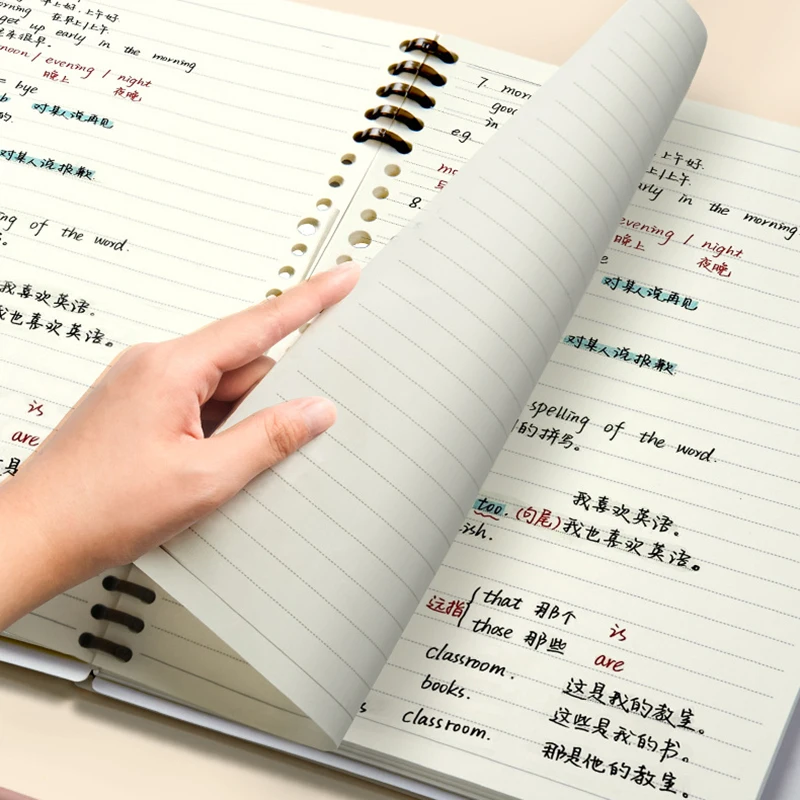 上午好
在早上/上午
get up early in the morning
noon / evening / night
晚上 夜晚
= bye
对某人说再见
的.
对某人说报歉
ng of the word.
我喜欢英语。
我也喜欢英语。
is
are
这是
7. mor
good
in
e.g.
8.
上午好.
上/上午.
early in the morning
evening / night
晚上 夜晚
对某人说再见
对某人说报歉
spelling of the word.
的拼写。
我喜欢英语。
too. (句尾) 我也喜欢英语。
ish.
远指 { that 那个 is
those 那些 are
classroom. 这是我的教室。
books. 这些是我的书。
s classroom. 那是他的教室。